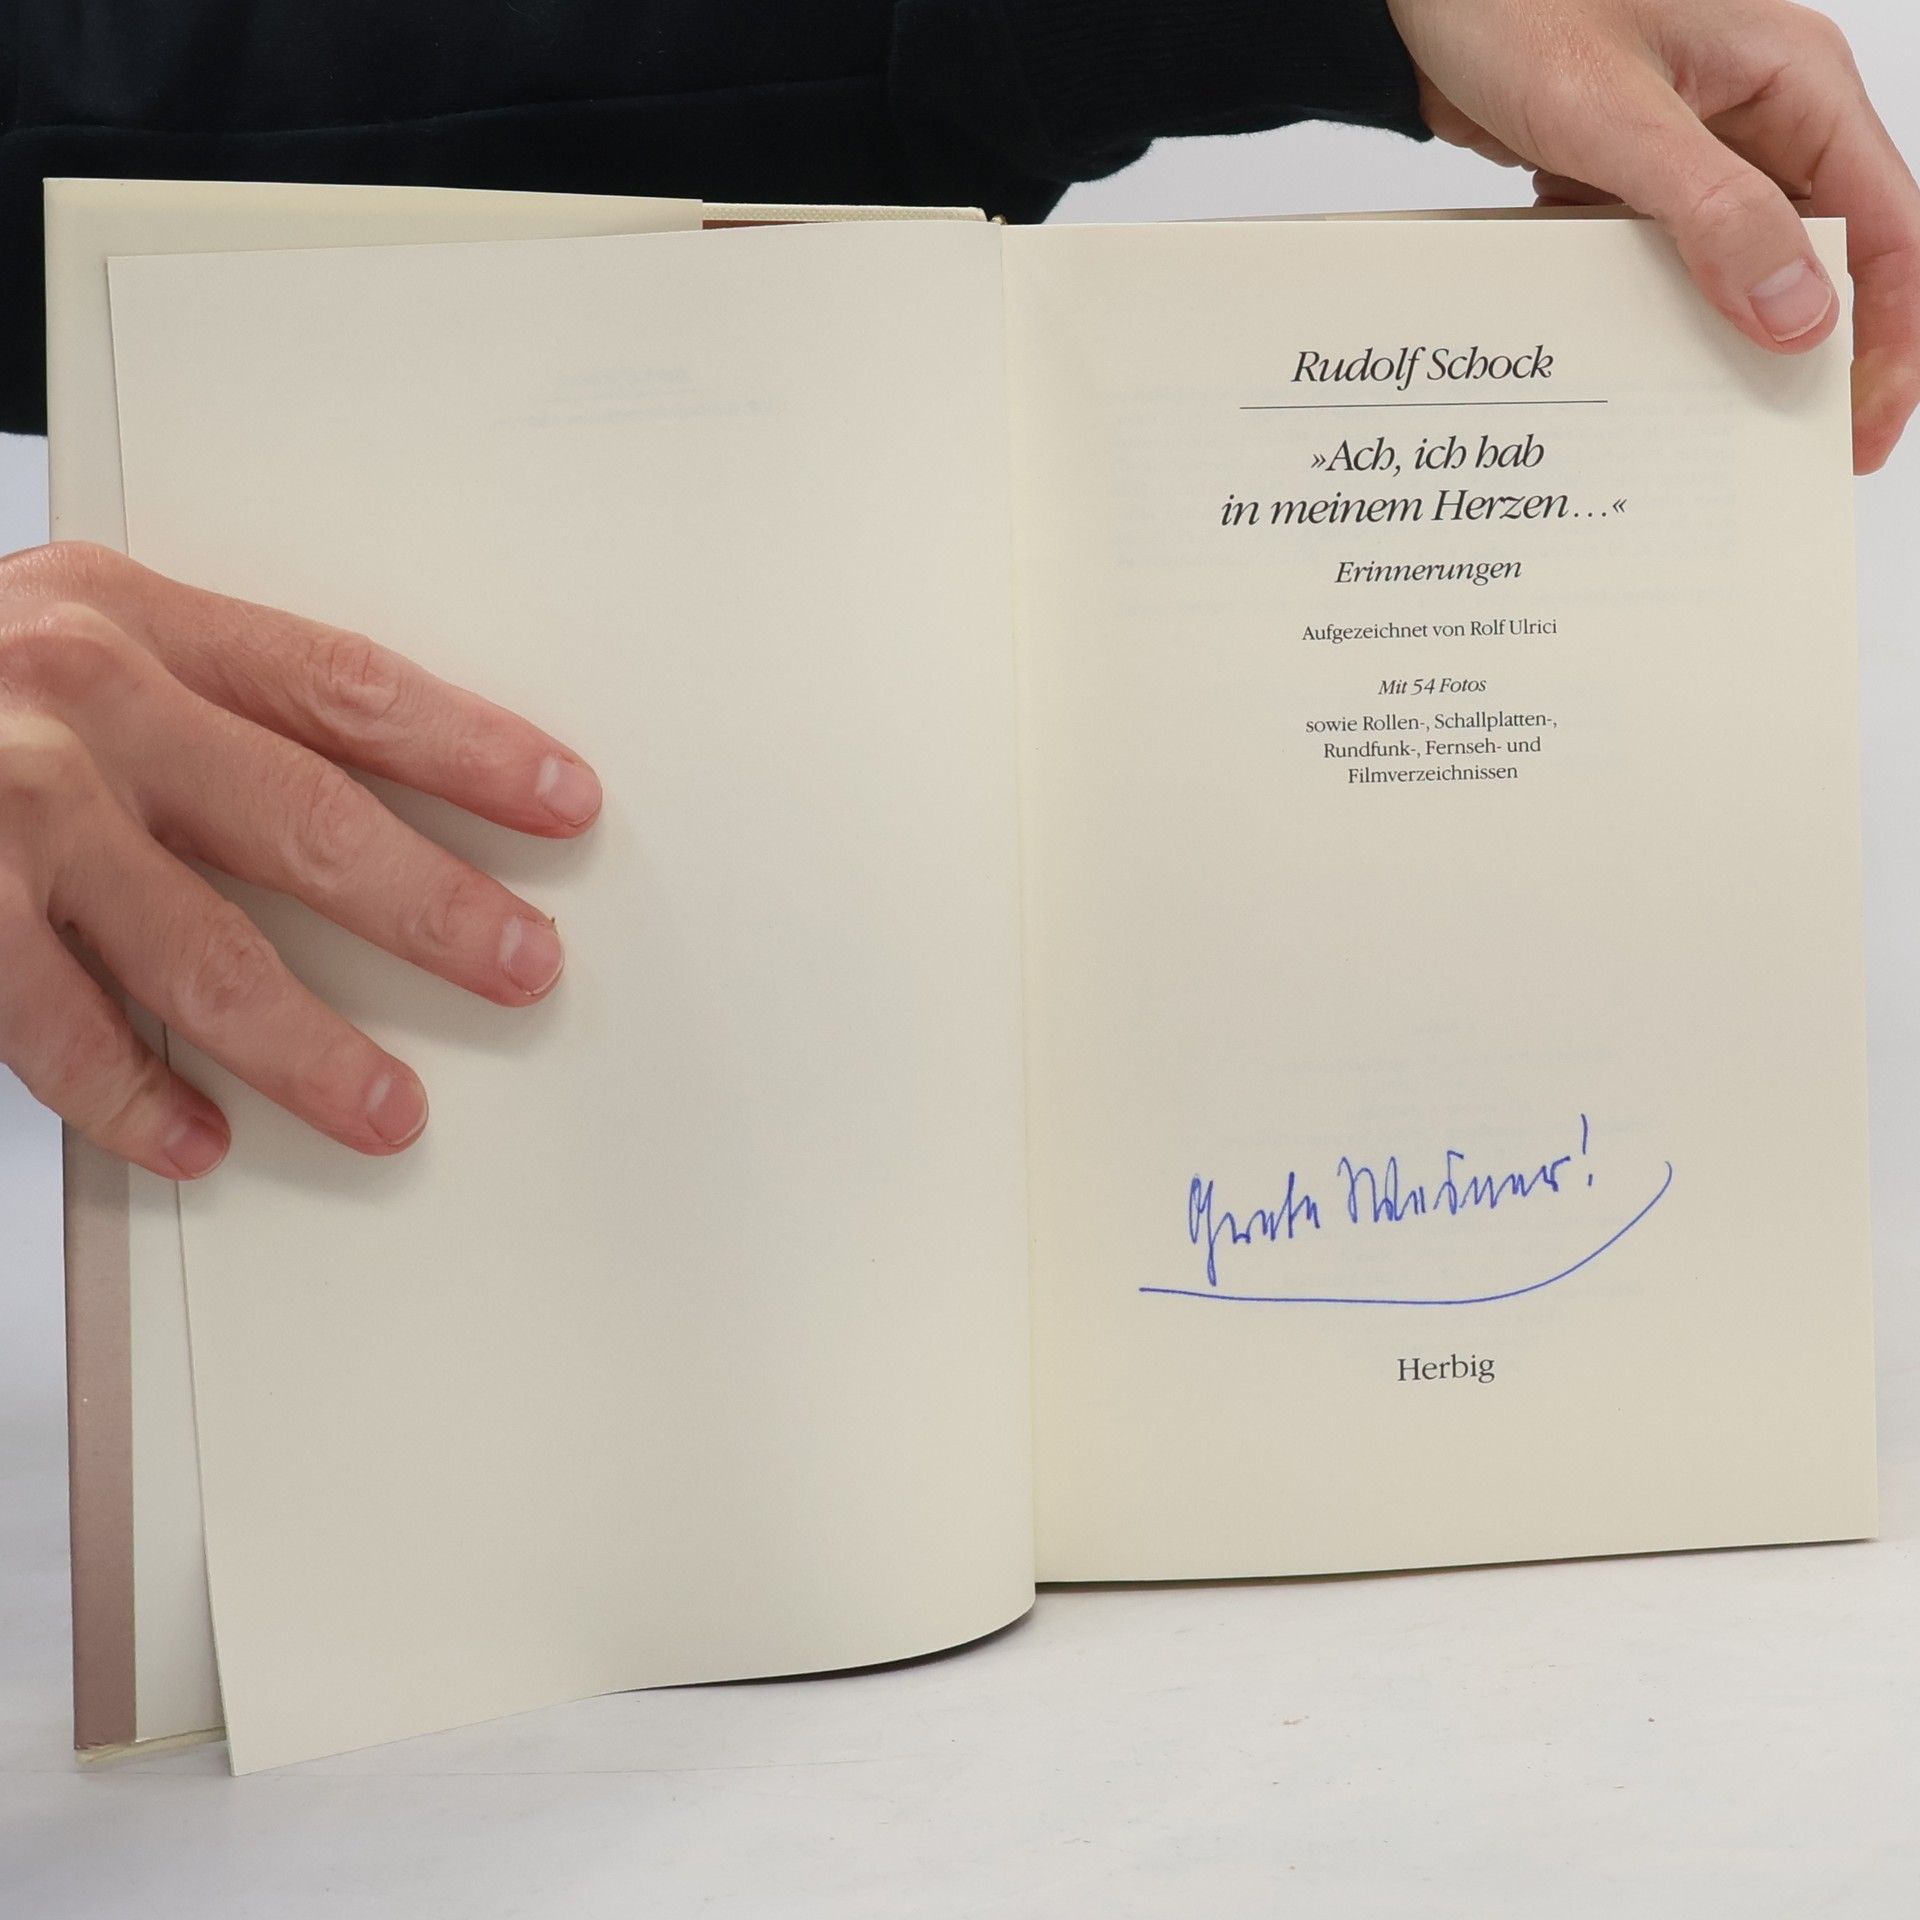 Rudolf Schock
»Ach, ich hab
in meinem Herzen...«
Erinnerungen
Aufgezeichnet von Rolf Ulrici
Mit 54 Fotos
sowie Rollen-, Schallplatten-,
Rundfunk-, Fernseh- und
Filmverzeichnissen
Herbig